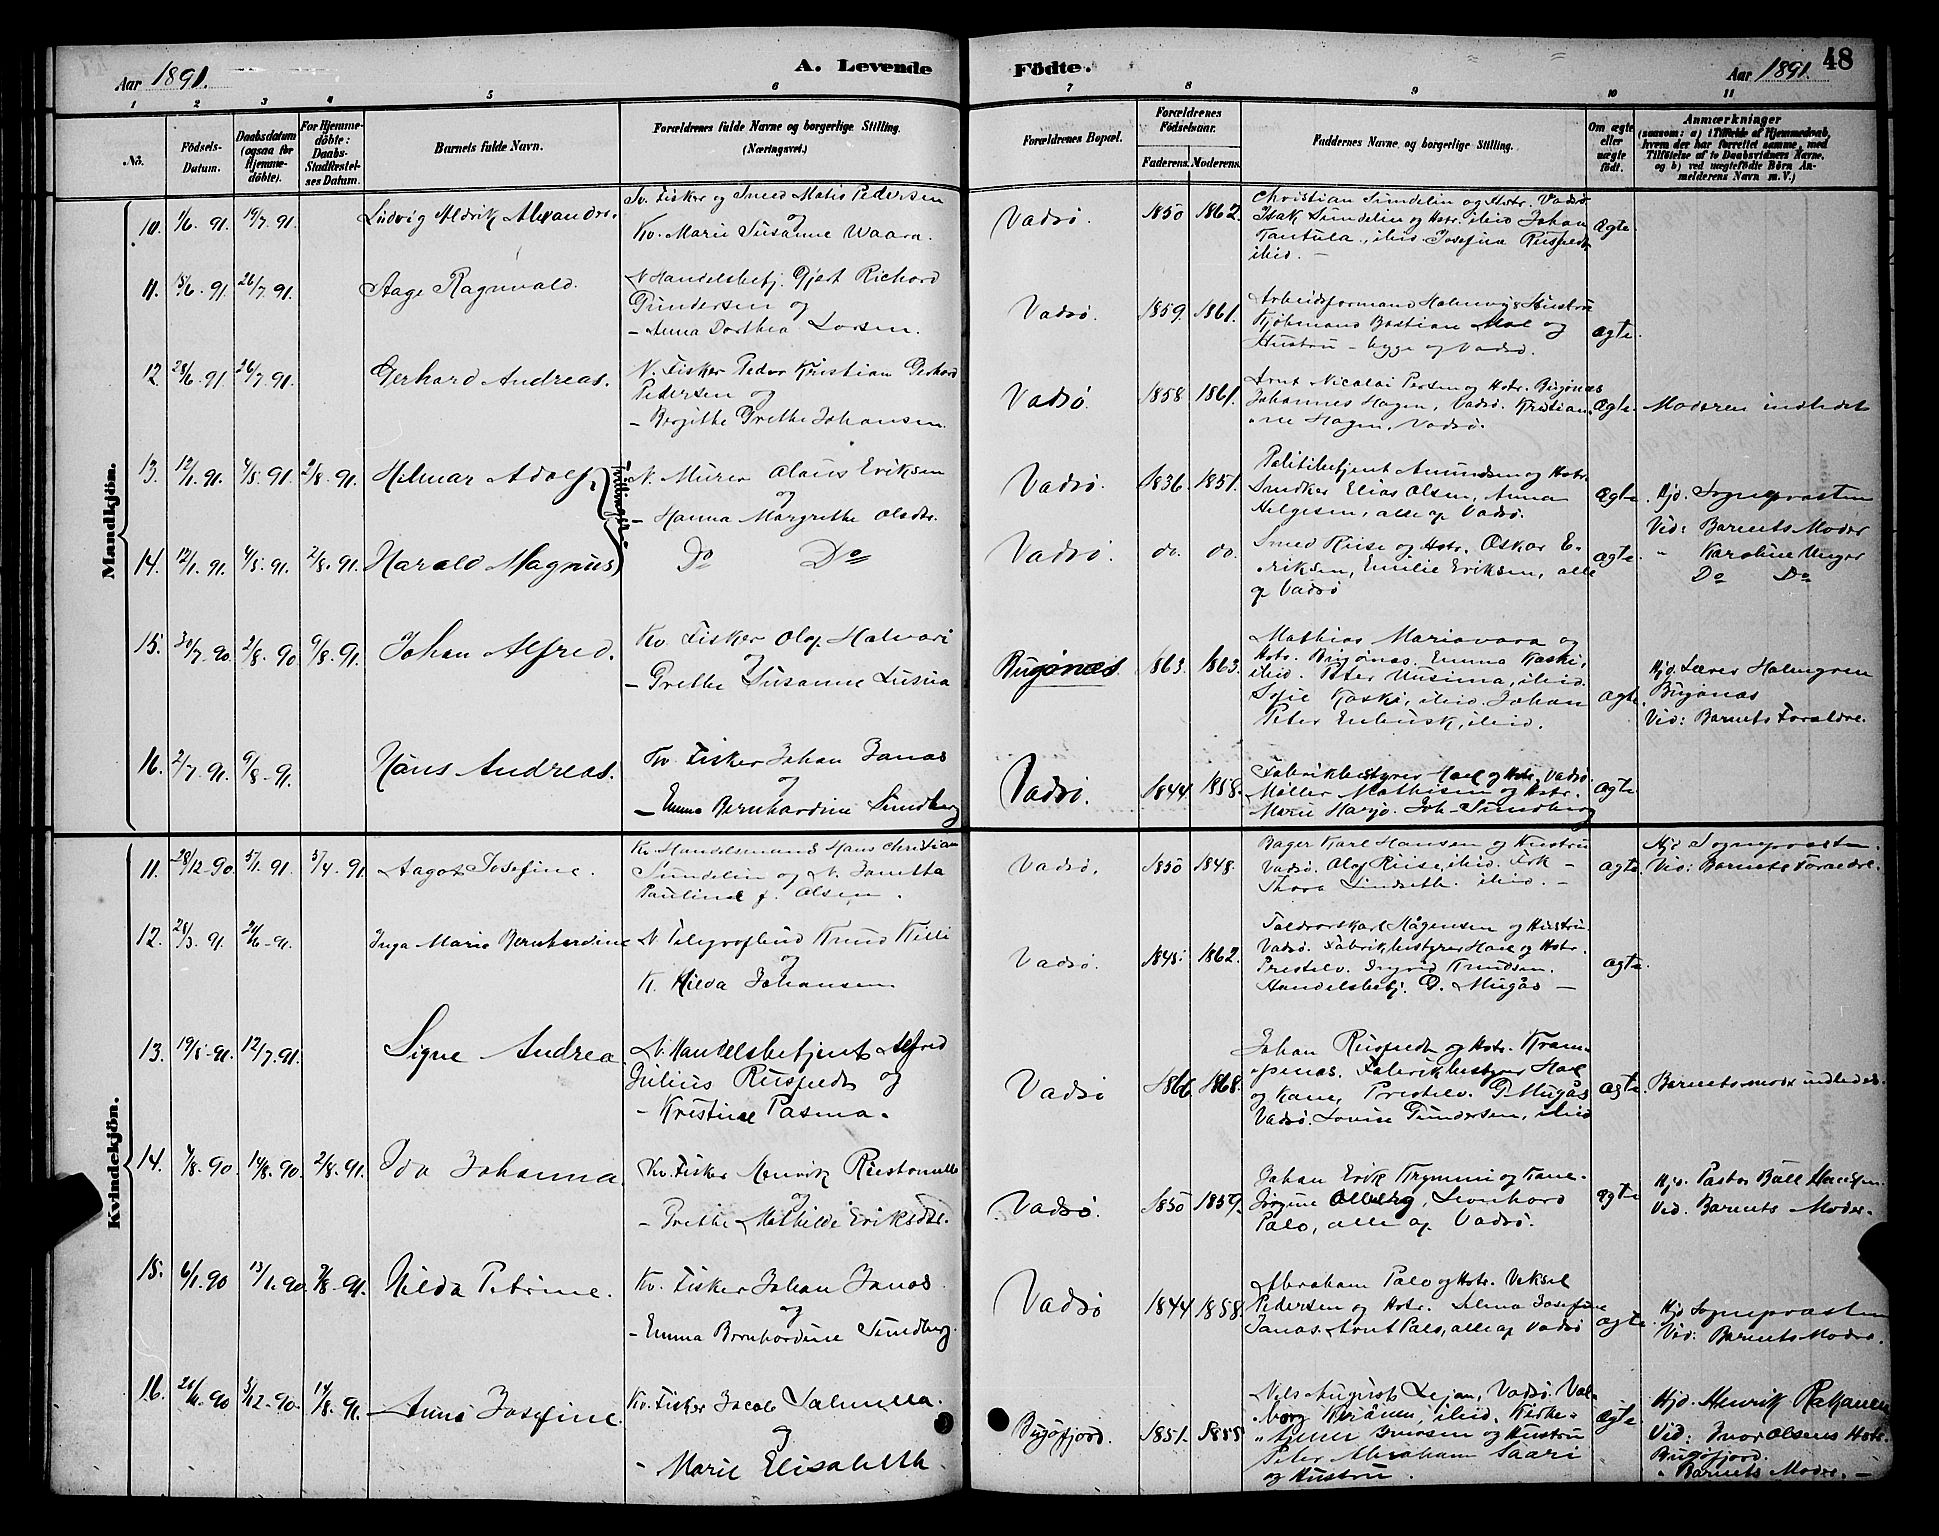 Aar 1891.
A. Levende
Födte.
Aar 1891.
48
1 2 3 4 5 6 7 8 9 10 11
No.
Födsels-Datum.
Daabsdatum (ogsaa for Hjemme-döbte).
For Hjemme-döbte: Daabs-Stadfæstel-ses Datum.
Barnets fulde Navn.
Forældrenes fulde Navne og borgerlige Stilling. (Næringsvei.)
Forældrenes Bopæl.
Forældrenes Födselsaar.
Faderens. Moderens.
Faddernes Navne, og borgerlige Stilling.
Om ægte eller uægte födt.
Anmærkninger
(saasom: a) i Tilfælde af Hjemmedaab, hvem der har forrettet samme, med Tilföielse af to Daabsvidners Navne, og b) ved uægtefödte Börn An-melderens Navn m. V.)
Mandkjön.
10. 1/6. 91. 19/7. 91. Ludvig Aldrik Alexander.
Kv. Fisker og Smed Matis Pedersen
og
Kv. Marie Susanne Waara.
Vadsø. 1850 1862.
Christian Sundelin og Hstr. Vadsø
Isak Sundelin og Hstr. ibid Johan
Tantula, ibid Josefina Rusfeldt
ibid. -
Ægte
11. 15/6. 91. 26/7. 91. Aage Ragnvald.
N. Handelsbetj. Gjert Richard
Gundersen og
- Anna Dorthea Larsen.
Vadsø. 1859. 1861.
Arbeidsformand Halmøy & Hustru
Kjøbmand Bastian Mal og
Hustru - begge af Vadsø.
ægte.
12 28/6. 91. 26/7. 91. Gerhard Andreas.
N. Fisker Peder Kristian Gerhard
Pedersen og
- Bergitte Grethe Johansen.
Vadsø. 1858 1861.
Arnt Nicolai Persen og Hstr. Bugønæs
Johannes Hagen, Vadsø. Kristian-
ne Hagen, Vadsø.
Ægte.
Moderen indledet
13. 12/1. 91. 4/5. 91. 2/8. 91. Hilmar Adolf,
Tvillinger
N. Murer Olaus Eriksen
og
- Hanna Margrethe Olsdtr.
Vadsø. 1836. 1851.
Politibetjent Amundsen og Hstr.
Snedker Elias Olsen, Anna
Helgesen, alle af Vadsø.
ægte
Hjd. Sogneprasten
Vid: Barnets Moder
" Karoline Unger
14. 12/1. 91. 4/5. 91. 2/8. 91. Harald Magnus
Do Do
Vadsø. do. do.
Smed Riise og Hstr. Oskar E-
riksen, Emilie Eriksen, alle
af Vadsø
ægte
Do Do
15. 30/7. 90. 2/8. 90 9/8. 91. Johan Alfred.
Kv. Fisker Olaf Halvari
og
- Grethe Susanne Lusua
Bugønæs 1863. 1863.
Mathias Mariavara og
Hstr. Bugønas. Emma Kaski,
ibid. Peter Uusima, ibid.
Sofie Kaski, ibid. Johan
Peter Enbusk, ibid.
ægte.
Hjd. Lærer Halmgren
Bugønæs
Vid: Barnets Foraldre.
16. 2/7. 91. 9/8. 91. Hans Andreas.
Kv. Fisker Johan Janas
og
- Emma Bernhardine Sundberg
Vadsø. 1844 1858.
Fabrikbestyrer Hael og Hstr. Vadsø.
Møller Mathisen og Hstr.
Marie Harjo. Joh. Sundberg
ægte
Kvindekjön.
11. 28/12. 90. 5/1. 91. 5/4. 91 Aagot Josefine.
Kv. Handelsmand Hans Christian
Sundelin og N. Janetta
Pauline f. Olsen.
Vadsø. 1850 1848.
Bager Karl Hansen og Hustru
Vadsø. Olaf Riise, ibid. Frk -
Thora Lindseth. ibid. -
ægte
Hjd Sogneprasten.
Vid: Barnets Foraldre.
12. 28/3. 91 21/6. 91. Inga Marie Bernhardine
N Telegrafbud Knud Killi
og
K. Hilda Johansen
Vadsø. 1845. 1862.
Toldvorskarl Mågensen og Hustru
Vadsø. Fabrikbestyrer Hael og Hstr.
Prestelv. Ingvid Knudsen.
Handelsbetj. D. Mugås -
ægte.
13. 19/5. 91. 12/7. 91. Signe Andrea.
N. Handelsbetjent Alfred
Julius Rusfeldt og
- Kristine Pasma.
Vadsø 1866 1868.
Johan Rusfeldt og Hstr. Kram-
penæs. Fabrikbestyrer Hael
og Kane, Prestelv. D. Mugås
Vadsø. Lovise Gundersen, ibid
ægte
Barnets moder indledet.
14. 7/8. 90. 14/8. 90. 2/8. 91. Ida Johanna
Kv. Fisker Henrik
og
- Grethe Mathilde Eriksdtr.
Vadsø. 1850 1859.
Johan Erik Krymmi og Kane
Jørgine, Leonhard
Palo, alle af Vadsø.
ægte
Hjd. Pastor Balle Hansen.
Vid. Barnets Moder.
15. 6/1. 90 13/1. 90 9/8. 91. Hilda Petrine.
Kv. Fisker Johan Janas.
og
- Emma Bernhardine Sundberg.
Vadsø 1844 1858.
Abraham Palo og Hstr. Veksel
Pedersen og Hstr. Selma Josefine
Janas. Arnt Palo, alle af Vadsø
ægte.
Hjd Sogneprasten
Vid: Barnets Moder.
16. 26/11. 90 3/12. 90. 14/8. 91. Anna Josefine.
Kv. Fisker Jacob Salmella.
og
- Marie Elisabeth.
Bugøfjord. 1851. 1855
Nils August Lejan, Vadsø. Val-
borg Keränen, ibid. Kirke-
og Hustru
Peter Abraham Saari
og Hustru.
Ægte
Hjd. Henrik
Vid: Ivar Olsens Hstr.
Bugøfjord.
" Barnets Moder. -